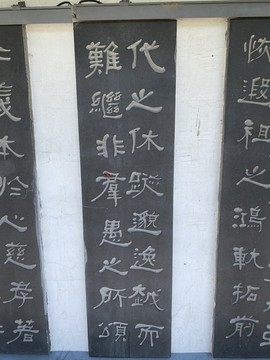 恢遐祖之鴻軌拓前
代之休蹤邈逸越而
難繼非羣愚之所頌
義本於心慈孝著